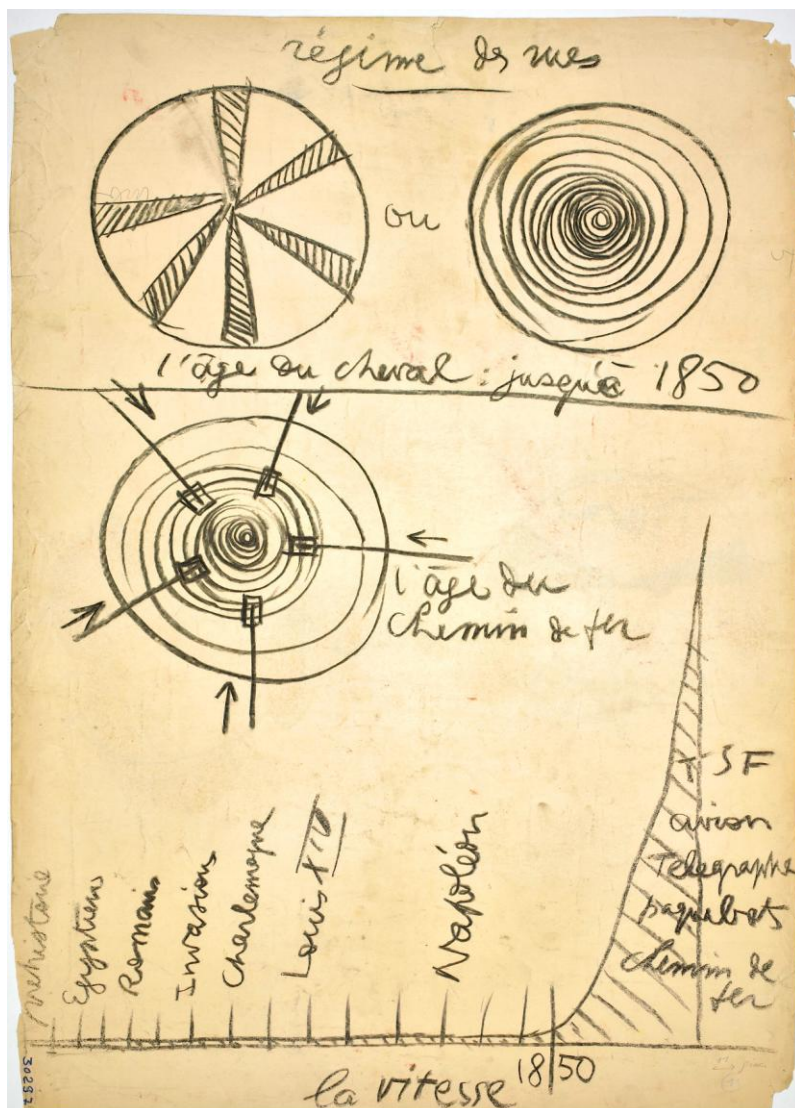 régime des rues
ou
l'âge du cheval : jusqu'à 1850
l'âge du
chemin de fer
préhistoire
Egyptiens
Romains
Invasions
Charlemagne
Louis XIV
Napoléon
TSF
avion
Telegraphe
paquebots
chemin de
fer
1850
la vitesse
30287